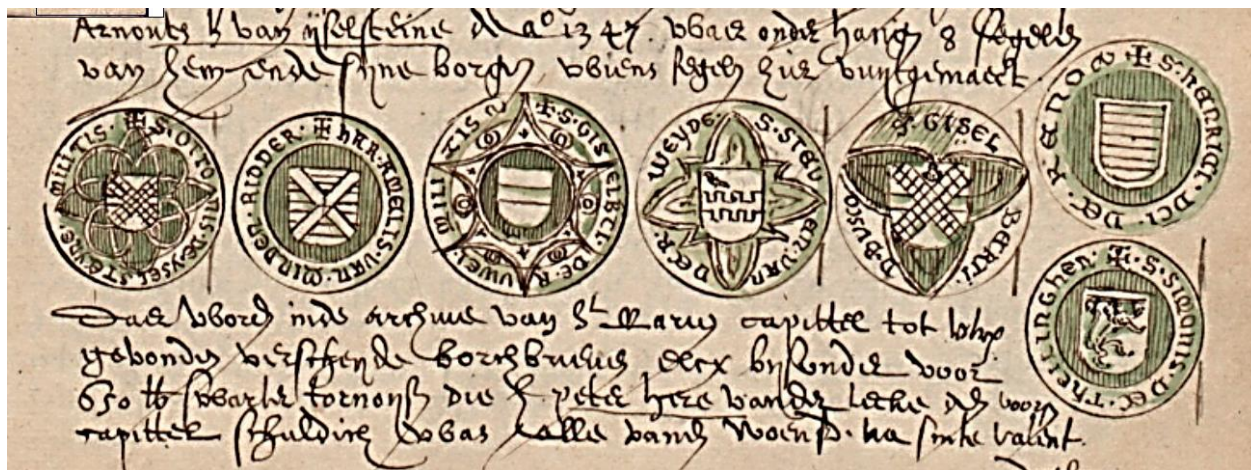 Arnouts h van ijselsteine d a° 1347. waer onder hang 8 segelen
van hem ende sijne borgen wiens segelen hier uuytgemaeckt.
✠ S. OTTONIS. DE. YSELSTEYNE. MILITIS.
✠ HAR. AMELIS. VAN. MINDEN. RIDDER.
✠ S. GISELBTI. DE. RUWEL. MILITIS
S. STEVEN. VAN. DER. WEYDE.
S. GISEL BERTI. D. BUSCO
✠ S. HENRICI. DCI. DE. RENOW
✠ S. SIMONIS. DE. THEILINGHEN.
Daer worden inde archive van St Marien capittel tot
gevonden verscheyde borchbrieven elcx bijsonder voor
650 lb swarte tornoys die h peter here vander Lecke den voors
capittel schuldich was alle vand Woensd. na sinte valint.